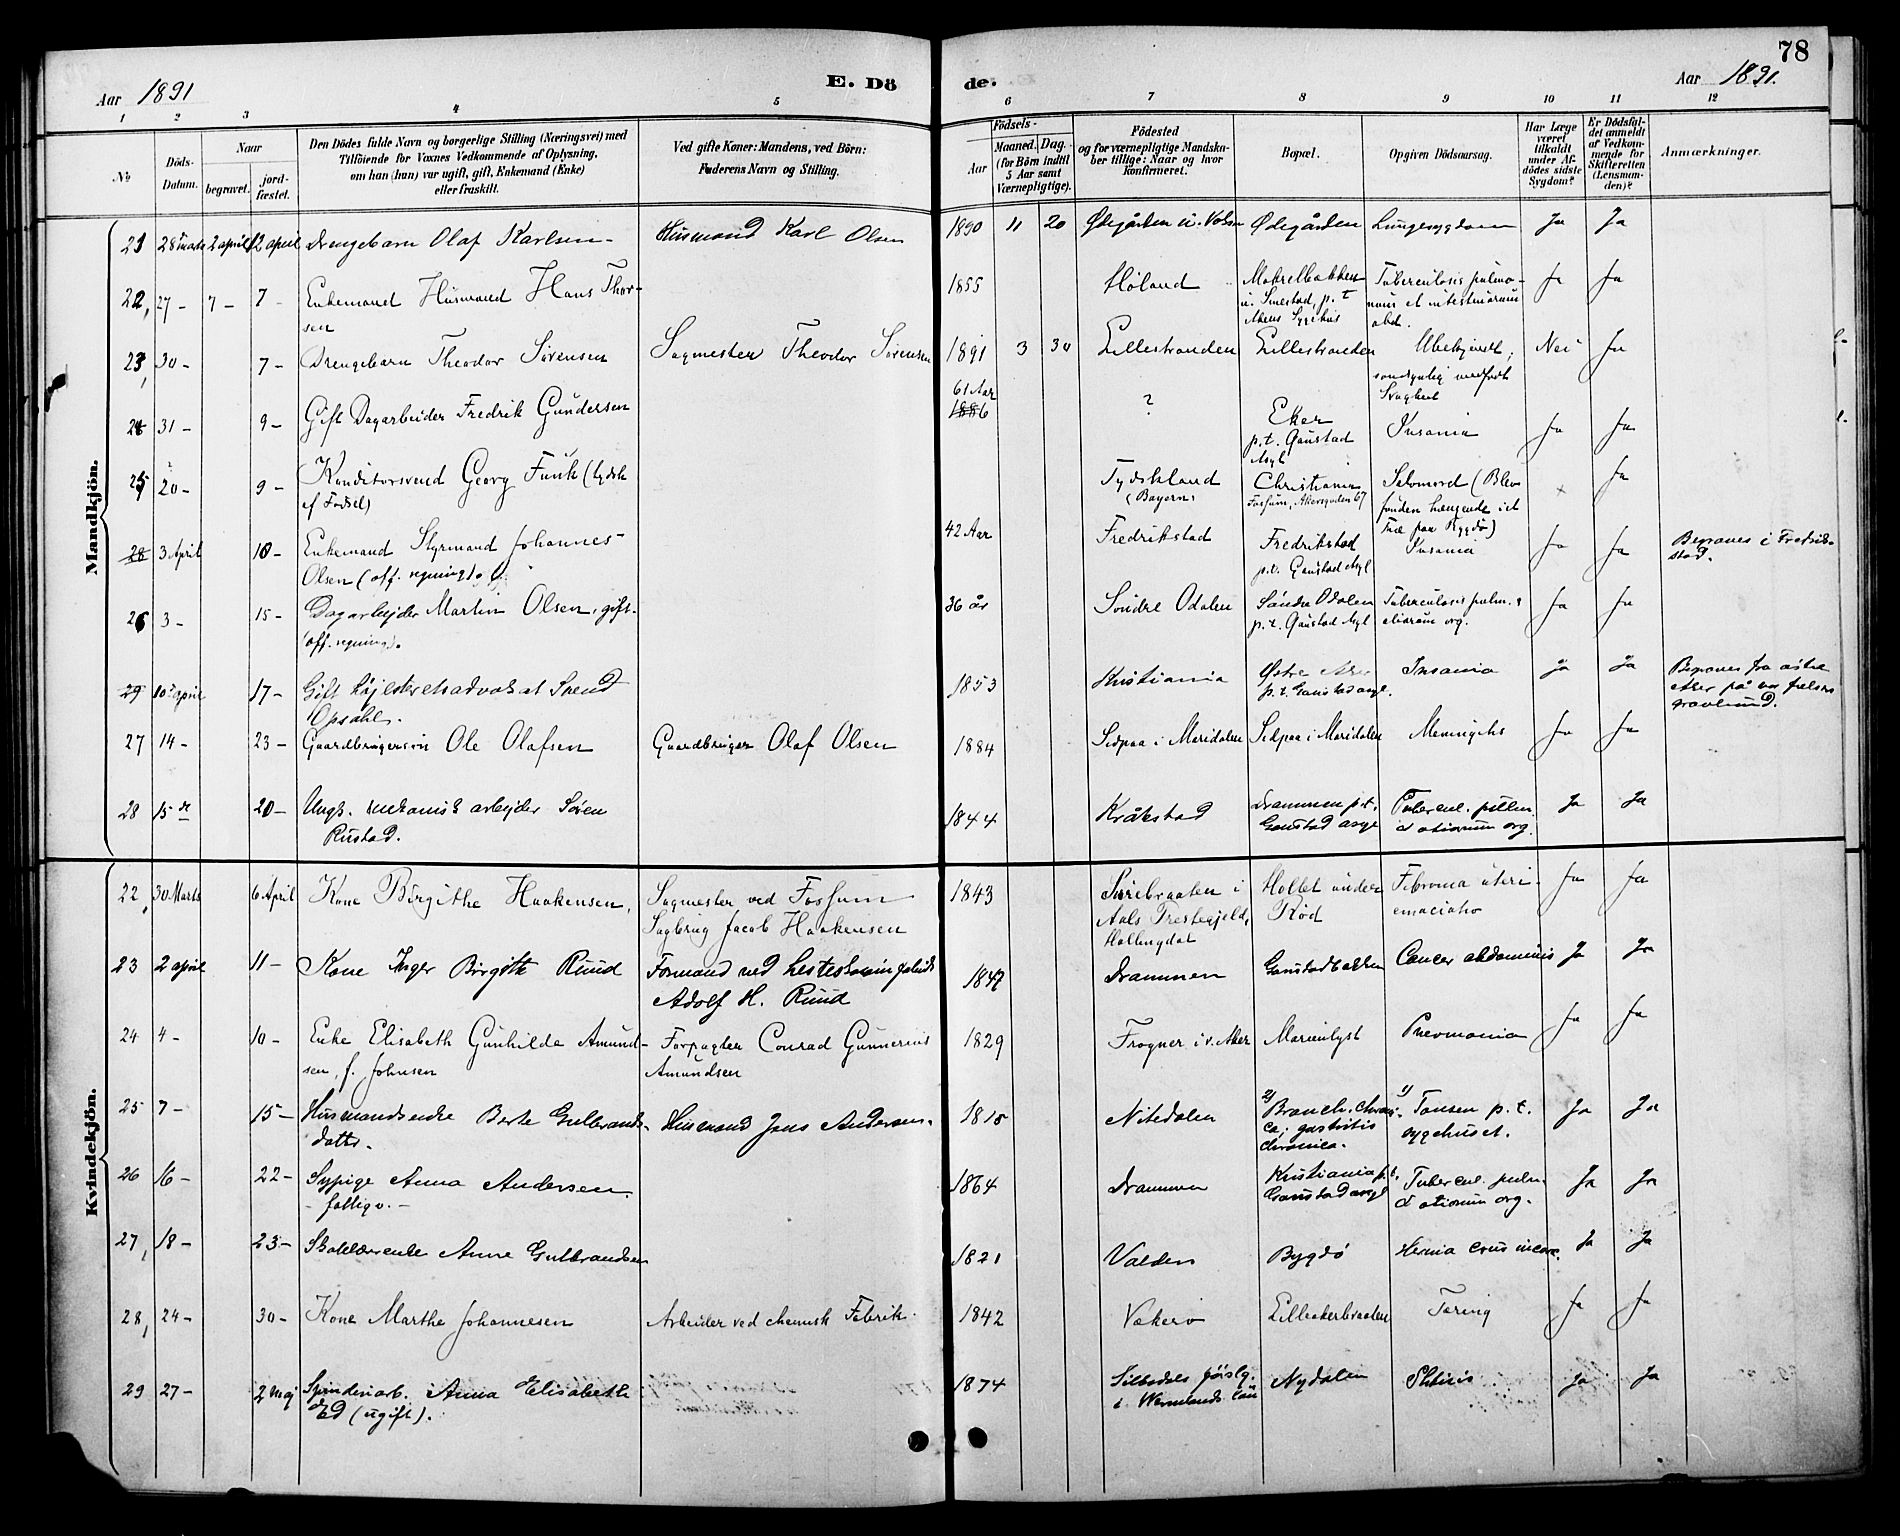 78
Aar 1891
E. Dö
de.
Aar 1891.
1 2 3 4 5 6 7 8 9 10 11 12
No
Döds-Datum.
Naar
begravet.
jord-fæstet.
Den Dödes fulde Navn og borgerlige Stilling (Næringsvei) med
Tilföiende for Voxnes Vedkommende af Oplysning,
om han (hun) var ugift, gift, Enkemand (Enke)
eller fraskilt.
Ved gifte Koner: Mandens, ved Börn:
Faderens Navn og Stilling.
Födsels-
Aar
Maaned. Dag.
(for Börn indtil
5 Aar samt
Værnepligtige).
Födested
og for værnepligtige Mandska-
ber tillige: Naar og hvor
konfirmeret.
Bopæl.
Opgiven Dödsaarsag.
Har Læge
været
tilkaldt
under Af-
dödes sidste
Sygdom?
Er Dödsfal-
det anmeldt
af Vedkom-
mende for
Skifteretten
(Lensman-
den)?
Anmærkninger.
Mandkjön.
21 28 marts 2 april 12 april Drengebarn Olaf Karlsen - Husmand Karl Olsen 1890 11 20 Ødegården u. Ødegården Lungesygdom Ja Ja
22, 27 - 7 - 7 - Enkemand Husmand Hans Thor-
sen 1855 Høland u. Smestad, p. t.
Akers Sygehus Tuberculosis pulmo-
num et intestinarum
abd. Ja Ja
23, 30 - 7 - Drengebarn Theodor Sørensen Sagmester Theodor Sørensen 1891 3 30 Lillestranden Lillestranden Ubekjendt,
sandsynlig medfødt
Svaghed Nei Ja
24 31 - 9 - Gift Dagarbeider Fredrik Gundersen 61 Aar
1886 ? Eker
p. t. Gaustad
Asyl Insania Ja Ja
25 20 - 9 - Konditorsvend Georg Funk (tydsk
af Fødsel) Tydskland
(Bayern) Christiania
Fossum, Akersgaden 67 Selvmord (Blev
funden hængende i et
Træ paa Bygdø) × Ja
28 3 April 10 - Enkemand Styrmand Johannes
Olsen (off. regning). 42 Aar Fredrikstad Fredrikstad
p. t. Gaustad Asyl Insania Ja Ja Begraves i Fredrik-
stad.
26 3 - 15 - Dagarbejder Martin Olsen, gift.
(off. regning). 36 år Søndre Odalen Søndre Odalen
p. t. Gaustad Asyl Tuberculosis pulm. &
aliorum org. Ja Ja
29 10 april 17 - Gift højesteretsadvokat Svend
Opsahl. 1853 Kristiania Østre Aker
p. t. Gaustad asyl. Insania Ja Ja Begraves fra østre
Aker på vor frelsers
gravlund.
27 14 - 23 - Gaardbrugersøn Ole Olafsen Gaardbruger Olaf Olsen 1884 Sedpaa i Maridalen Sedpaa i Maridalen Meningitis Ja Ja
28 15 de 20 - Ungk. mekanisk arbejder Søren
Rustad. 1844 Kråkstad Drammen p. t.
Gaustad asyl Tubercul. pulm.
et aliorum org. Ja Ja
Kvindekjön.
22, 30 Marts 6 April Kone Birgithe Haakensen, Sagmester ved Fossum
Sagbrug Jacob Haakensen 1843 i
Aals Prestegjeld,
Hallingdal Hollet under
Rød Fibroma uteri -
emaciatio Ja Ja
23 2 april 11 - Kone Inger Birgitte Ruud Formand ved hesteskosømfabrik
Adolf H. Ruud 1847 Drammen Gaustadbakken Cancer abdominis Ja Ja
24 4 - 10 - Enke Elisabeth Gunhilde Amund-
sen, f. Johnsen Forpagter Conrad Gunnerius
Amundsen 1829 Frogner i v. Aker Marienlyst Pneumonia Ja Ja
25 7 - 15 - Husmandsenke Berte Gulbrands-
datter. Husmand Jens Andersen. 1815 Nitedalen 2) Bronch. chroni-
ca; gastritis
chronica. 1) Tonsen p. t.
sygehuset. Ja Ja
26 16 - 22 - Sypige Anna Andersen
- fattigv. - 1864 Drammen Kristiania p. t.
Gaustad asyl Tubercul. pulm.
et aliorum org. Ja Ja
27, 18 - 23 - Anne Gulbrandsen 1821 Valders Bygdø Hernia Ja Ja
28, 24 - 30 - Kone Marthe Johannesen Arbeider ved chemisk Fabrik. 1842 Vækerø Lilleakerbraaten Tæring Ja Ja
29 27 - 2 Maj Spinderiarb. Anna Elisabeth
Ed (ugift). 1874 Silbodals
i Wermlands län Nydalen Phtisis Ja Ja